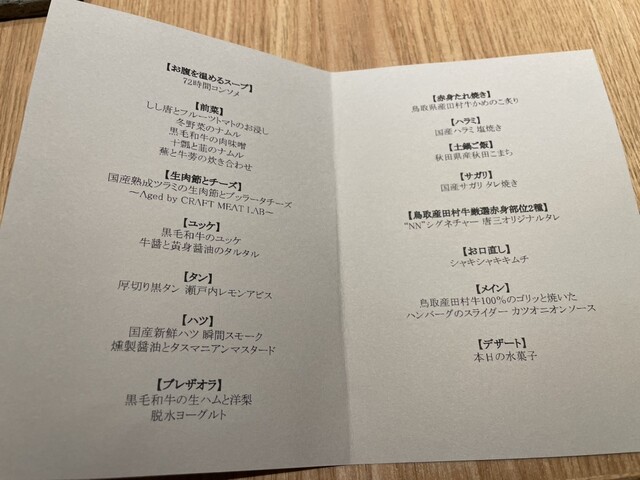 【お腹を温めるスープ】
72時間コンソメ
【前菜】
しし唐とフルーツトマトのお浸し
冬野菜のナムル
黒毛和牛の肉味噌
十瓢と韮のナムル
蕪と牛蒡の炊き合わせ
【生肉節とチーズ】
国産熟成ツラミの生肉節とブッラータチーズ
～Aged by CRAFT MEAT LAB～
【ユッケ】
黒毛和牛のユッケ
牛醤と黄身醤油のタルタル
【タン】
厚切り黒タン 瀬戸内レモンアビス
【ハツ】
国産新鮮ハツ 瞬間スモーク
燻製醤油とタスマニアンマスタード
【ブレザオラ】
黒毛和牛の生ハムと洋梨
脱水ヨーグルト
【赤身たれ焼き】
鳥取県産田村牛かめのこ炙り
【ハラミ】
国産ハラミ 塩焼き
【土鍋ご飯】
秋田県産秋田こまち
【サガリ】
国産サガリ タレ焼き
【鳥取産田村牛厳選赤身部位2種】
“NN”シグネチャー 唐三オリジナルタレ
【お口直し】
シャキシャキキムチ
【メイン】
鳥取産田村牛100%のゴリッと焼いた
ハンバーグのスライダー カツオニオンソース
【デザート】
本日の水菓子